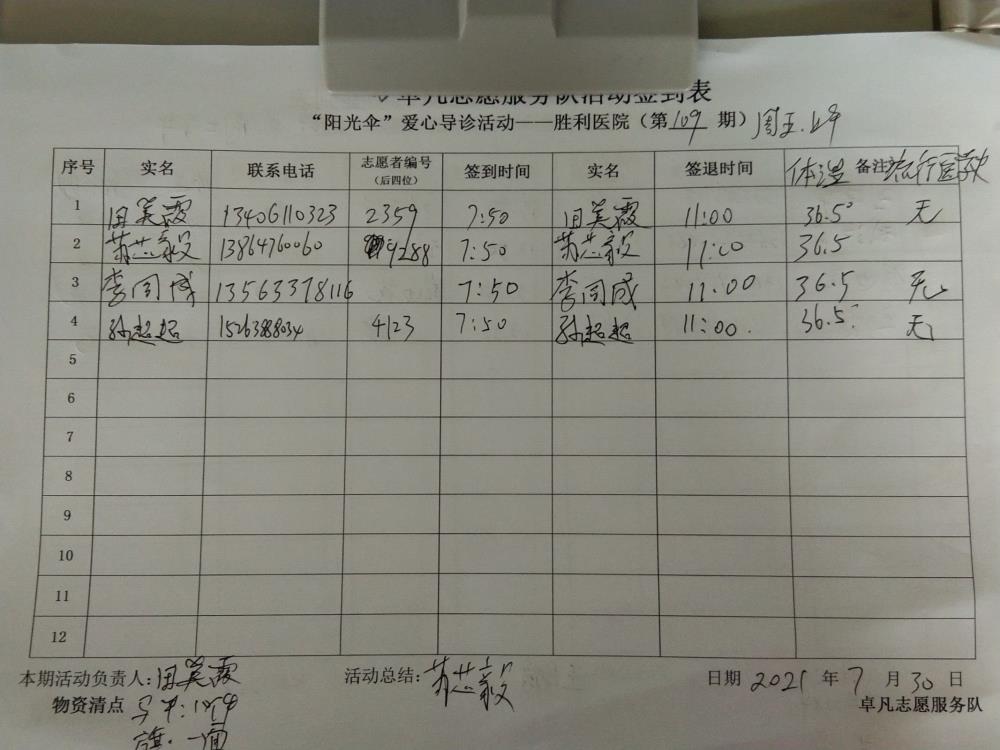 卓凡志愿服务队活动签到表
“阳光伞”爱心导诊活动——胜利医院（第109期）周五.上午
序号 实名 联系电话 志愿者编号（后四位） 签到时间 实名 签退时间 体温 备注 流行医学史
1 田美霞 13406110323 2359 7:50 田美霞 11:00 36.5° 无
2 苏芯毅 13864760060 9288 7:50 苏芯毅 11:00 36.5
3 李同成 13563378116 7:50 李同成 11:00 36.5 无
4 孙超超 15263888034 4123 7:50 孙超超 11:00. 36.5° 无
5
6
7
8
9
10
11
12
本期活动负责人:田美霞 活动总结:苏芯毅 日期 2021 年 7 月 30 日
物资清点 卓凡志愿服务队
旗:一面